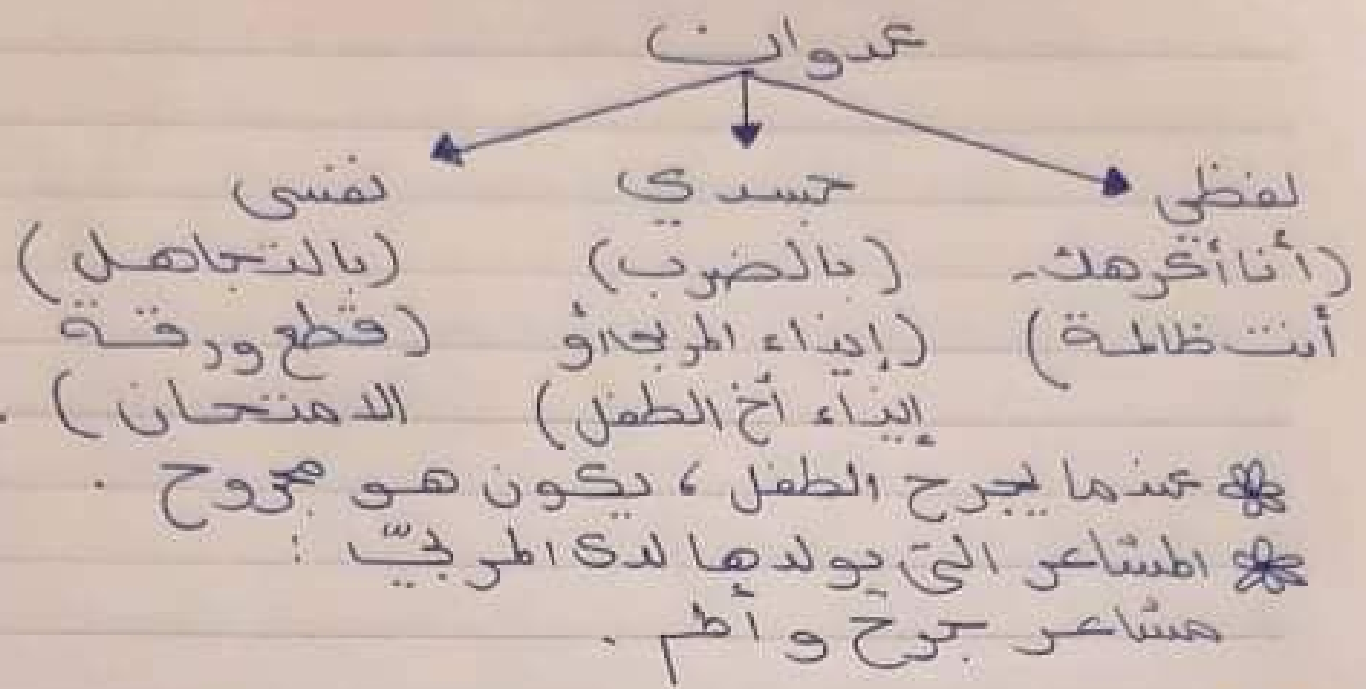 عدوان
لفظي
(أنا أكرهك -
أنت ظالمة)
جسدي
(بالضرب)
(إيذاء المربي أو
إيذاء أخ الطفل)
نفسي
(بالتجاهل)
(قطع ورقة
الامتحان).
عندما يجرح الطفل، يكون هو مجروح.
المشاعر التي يولدها لدى المربيّ:
مشاعر جرح وألم.